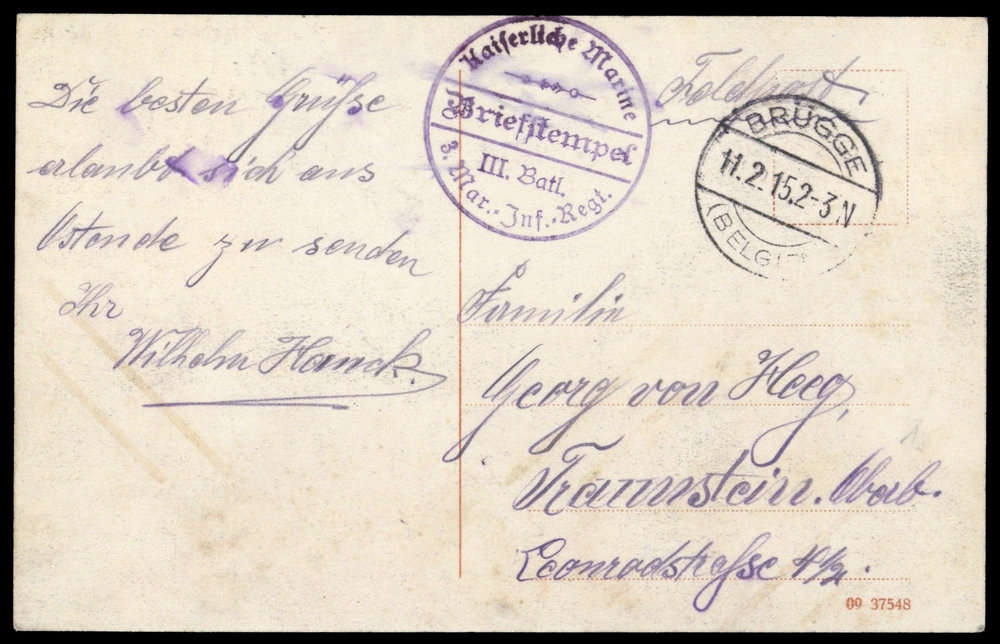 Die besten Grüße
erlaubt sich aus
Ostende zu senden
Ihr
Wilhelm Hanck.
Kaiserliche Marine
Briefstempel
III. Batl.
3. Mar.-Inf.-Regt.
Feldpost.
BRÜGGE
11.2.15.2-3.N
(BELGI
Familie
Georg von Heeg,
Traunstein. Obab.
09 37548